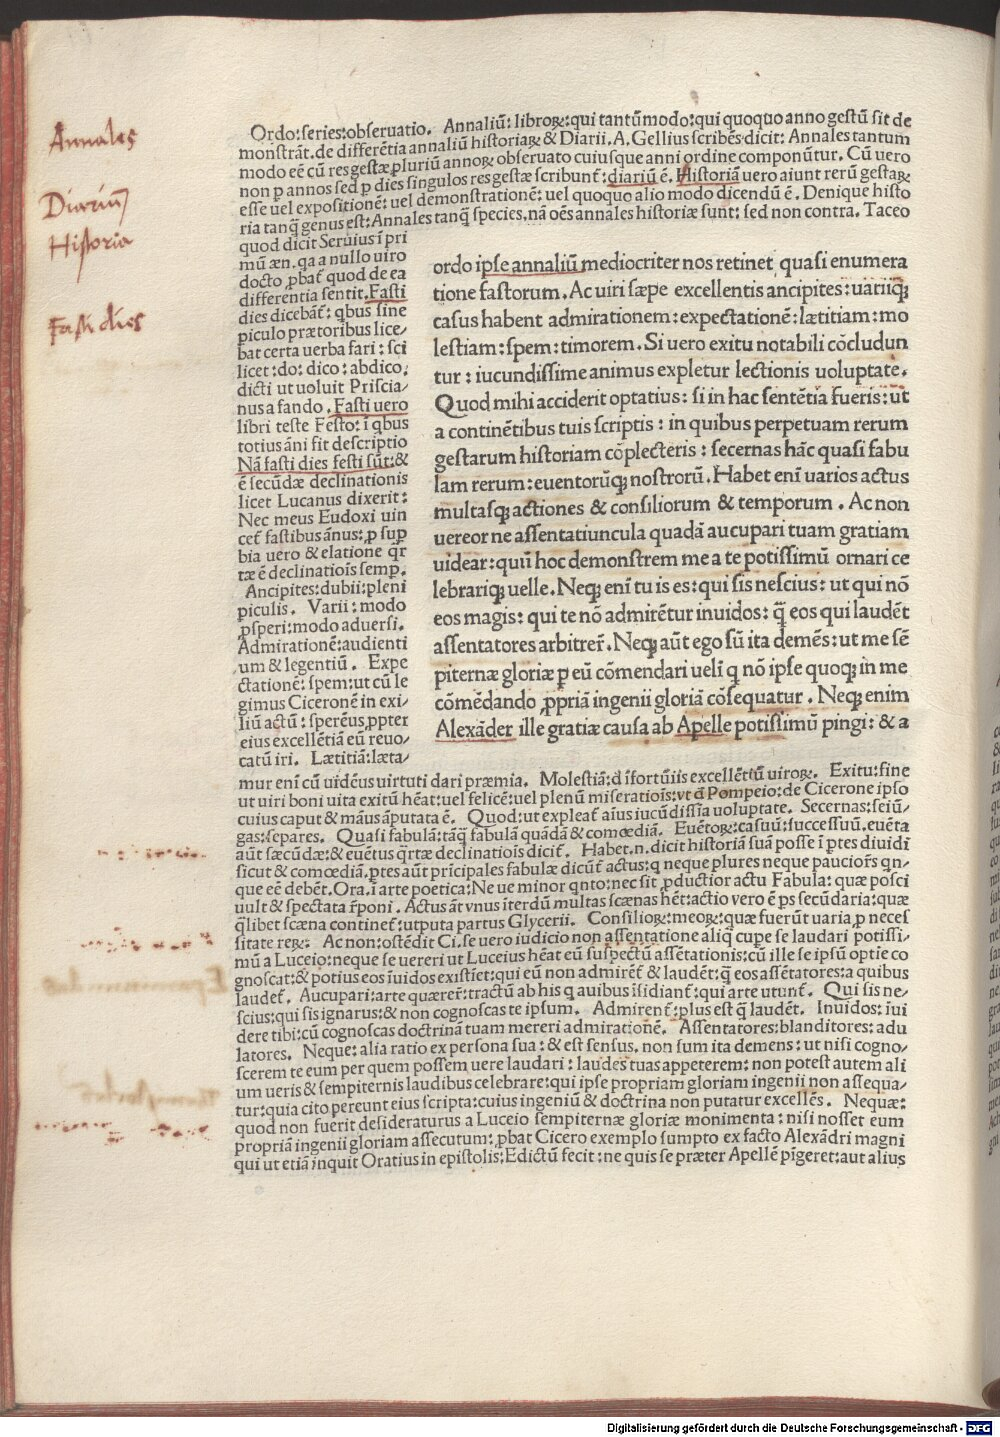 Annales
Diariū
Historia
Fasti dies
Ordo: series: obseruatio. Annaliū: libroꝝ: qui tantūmodo: qui quoquo anno gestū sit de
monstrāt. de differētia annaliū historiaꝝ & Diarii. A. Gellius scribēs dicit: Annales tantum
modo eē cū res gestæ pluriū annoꝝ obseruato cuiusque anni ordine componūtur. Cū uero
non p annos sed p dies singulos res gestæ scribunt̄: diariū ē. Historiā uero aiunt rerū gestaꝝ
esse uel expositionē: uel demonstrationē: uel quoquo alio modo dicendū ē. Denique histo
ria tanq̄ genus est: Annales tanq̄ species, nā oēs annales historiæ sunt: sed non contra. Taceo
quod dicit Seruius ī pri
mū æn. qa a nullo uiro
docto ꝓbat̄ quod de ea
differentia sentit. Fasti
dies dicebāt̄: qbus sine
piculo prætoribus lice/
bat certa uerba fari: sci
licet: do: dico: abdico,
dicti ut uoluit Priscia/
nus a fando. Fasti uero
libri teste Festo: ī qbus
totius āni fit descriptio
Nā fasti dies festi sūt: &
ē secūdæ declinationis
licet Lucanus dixerit:
Nec meus Eudoxi uin
cet̄ fastibus ānus: ꝓ sup
bia uero & elatione qr
tæ ē declinatiois semp.
Ancipites: dubii: pleni
piculis. Varii: modo
ꝓsperi: modo aduersi.
Admirationē: audienti
um & legentiū. Expe
ctationē: spem: ut cū le
gimus Ciceronē in exi/
liū actū: sperēus ꝓpter
eius excellētiā eū reuo/
catū iri. Lætitiā: læta/
ordo ipse annaliū mediocriter nos retinet quasi enumera
tione fastorum. Ac uiri sæpe excellentis ancipites: uariiqꝫ
casus habent admirationem: expectationē: lætitiam: mo
lestiam: spem: timorem. Si uero exitu notabili cōcludun
tur: iucundissime animus expletur lectionis uoluptate.
Quod mihi acciderit optatius: si in hac sentētia fueris: ut
a continētibus tuis scriptis: in quibus perpetuam rerum
gestarum historiam cōplecteris: secernas hāc quasi fabu
lam rerum: euentorūqꝫ nostrorū. Habet enī uarios actus
multasqꝫ actiones & consiliorum & temporum. Ac non
uereor ne assentatiuncula quadā aucupari tuam gratiam
uidear: quū hoc demonstrem me a te potissimū ornari ce
lebrariqꝫ uelle. Neqꝫ enī tu is es: qui sis nescius: ut qui nō
eos magis: qui te nō admirētur inuidos: q̄ eos qui laudēt
assentatores arbitrer̄. Neqꝫ aūt ego sū ita demēs: ut me sē
piternæ gloriæ p eū cōmendari uelī q nō ipse quoqꝫ in me
cōmēdando ꝓpriā ingenii gloriā cōsequatur. Neqꝫ enim
Alexāder ille gratiæ causa ab Apelle potissimū pingi: & a
mur enī cū uidēus uirtuti dari præmia. Molestiā: d īfortūiis excellētiū uiroꝝ. Exitu: fine
ut uiri boni uita exitū hēat: uel felicē: uel plenū miseratiois: vt d̄ Pompeio: de Cicerone ipso
cuius caput & māus āputata ē. Quod: ut expleat̄ aīus iucūdissīa uoluptate. Secernas: seiū/
gas: separes. Quasi fabulā: tāq̄ fabulā quādā & comœdiā. Euētoꝝ: casuū: successuū. euēta
aūt sæcūdæ: & euētus q̄rtæ declinatiois dicit̄. Habet. n. dicit historiā suā posse ī ptes diuidī
sicut & comœdiā. ptes aūt prīcipales fabulæ dicūt̄ actus: q neque plures neque pauciores qn/
que eē debēt. Ora. ī arte poetica: Ne ue minor qnto: nec sit ꝓductior actu Fabula: quæ posci
uult & spectata r̄poni. Actus āt vnus īterdū multas scænas hēt: actio vero ē ps secūdaria: quæ
q̄libet scæna continet̄: utputa partus Glycerii. Consilioꝝ: meoꝝ: quæ fuerūt uaria ꝓ neces
sitate reꝝ: Ac non: ostēdit Ci. se uero iudicio non assentatione aliq̄ cupe se laudari potissi/
mū a Luceio: neque se uereri ut Luceius hēat eū suspectū assētationis: cū ille se ipsū optie co
gnoscat: & potius eos īuidos existiet: qui eū non admirēt̄ & laudēt: q̄ eos assētatores: a quibus
laudet̄. Aucupari: arte quærer̄: tractū ab his q auibus īsidiant̄: qui arte utunt̄. Qui sis ne/
scius: qui sis ignarus: & non cognoscas te ipsum. Admirent̄: plus est q̄ laudēt. Inuidos: īui
dere tibi: cū cognoscas doctrinā tuam mereri admirationē. Assentatores: blanditores: adu
latores. Neque: alia ratio ex persona sua: & est sensus. non sum ita demens: ut nisi cogno/
scerem te eum per quem possem uere laudari: laudes tuas appeterem: non potest autem ali
um ueris & sempiternis laudibus celebrare: qui ipse propriam gloriam ingenii non assequa/
tur: quia cito pereunt eius scripta: cuius ingeniū & doctrina non putatur excellēs. Nequæ:
quod non fuerit desideraturus a Luceio sempiternæ gloriæ monimenta: nisi nosset eum
propriā ingenii gloriam assecutum: ꝓbat Cicero exemplo sumpto ex facto Alexādri magni
qui ut etiā inquit Oratius in epistolis: Edictū fecit: ne quis se præter Apellē pīgeret: aut alius
Digitalisierung gefördert durch die Deutsche Forschungsgemeinschaft - DFG